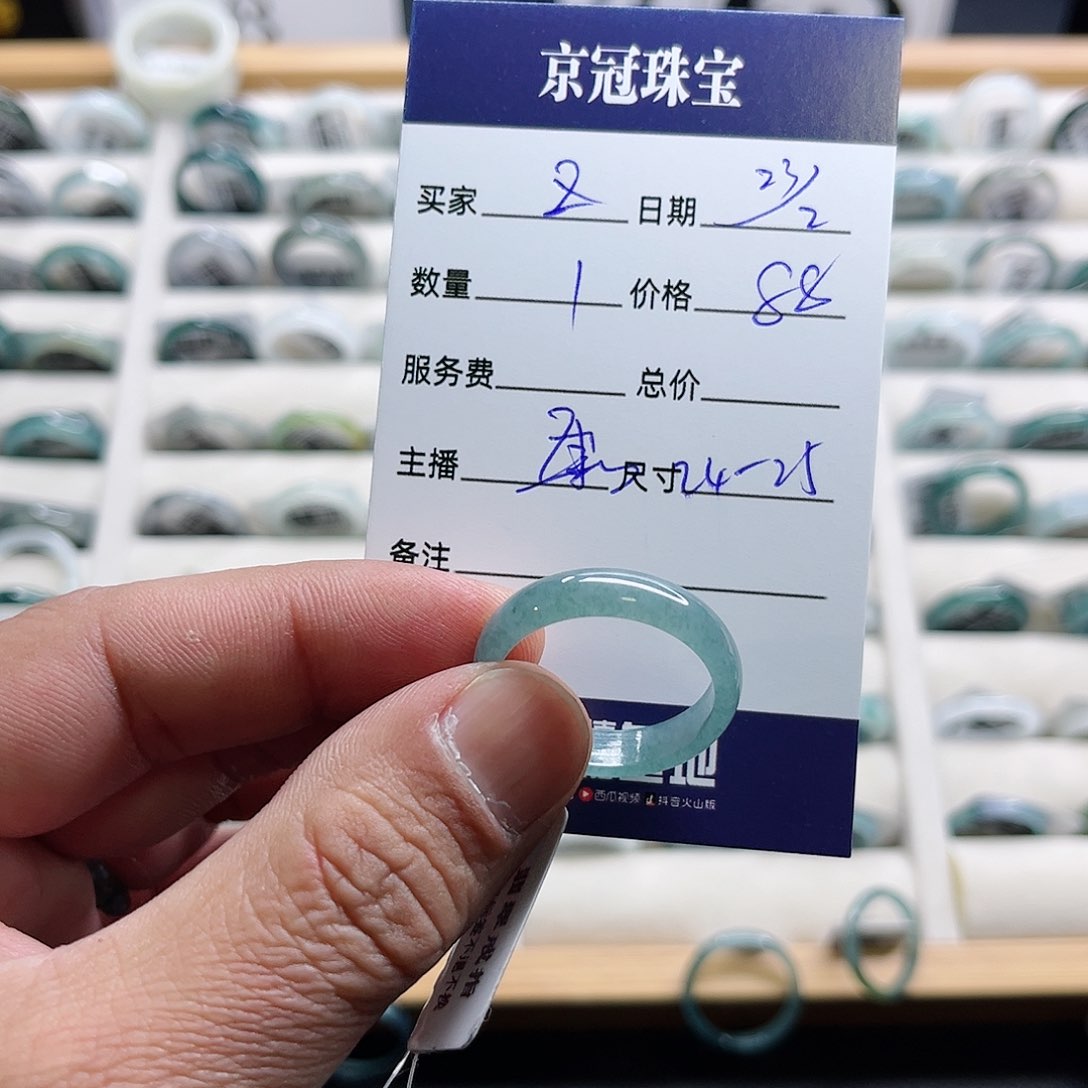 京冠珠宝
买家 2 日期 23/2
数量 1 价格 88
服务费 总价
主播 尺寸 24-25
备注
西瓜视频 抖音火山版